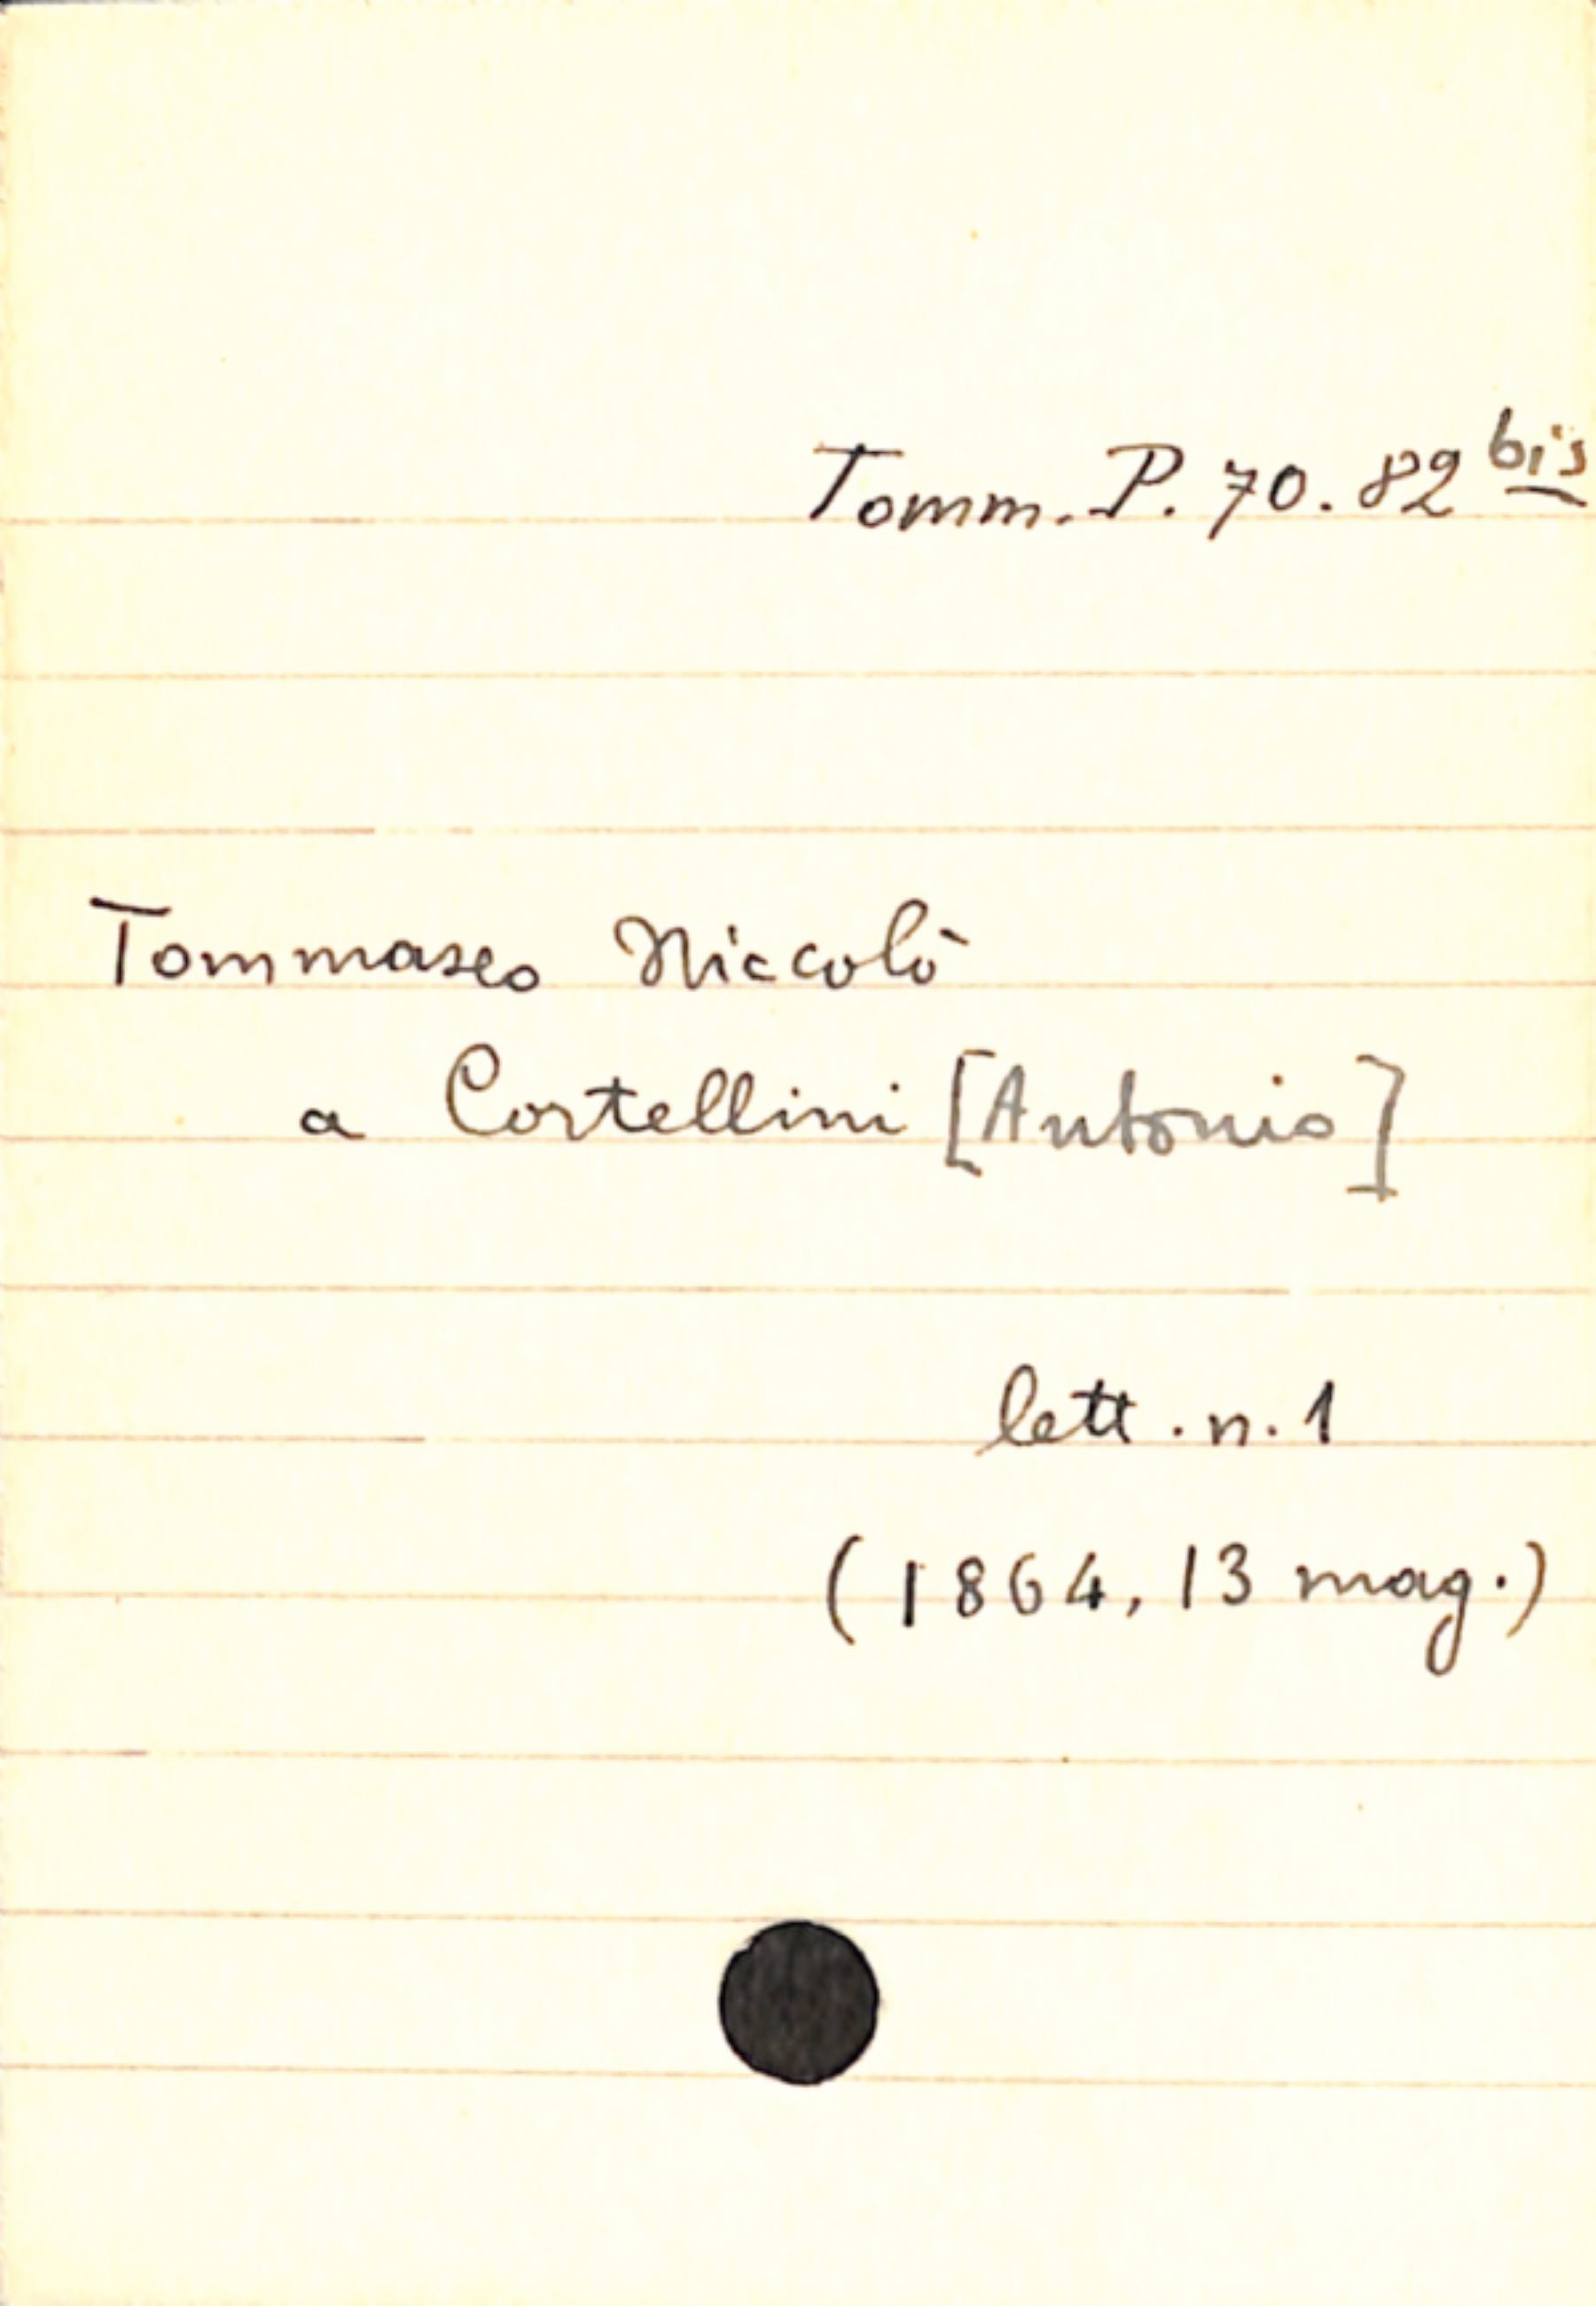 Tomm. P. 70. 82 bis
Tommaseo Niccolò
a Cortellini [Antonio]
lett. n. 1
(1864, 13 mag.)